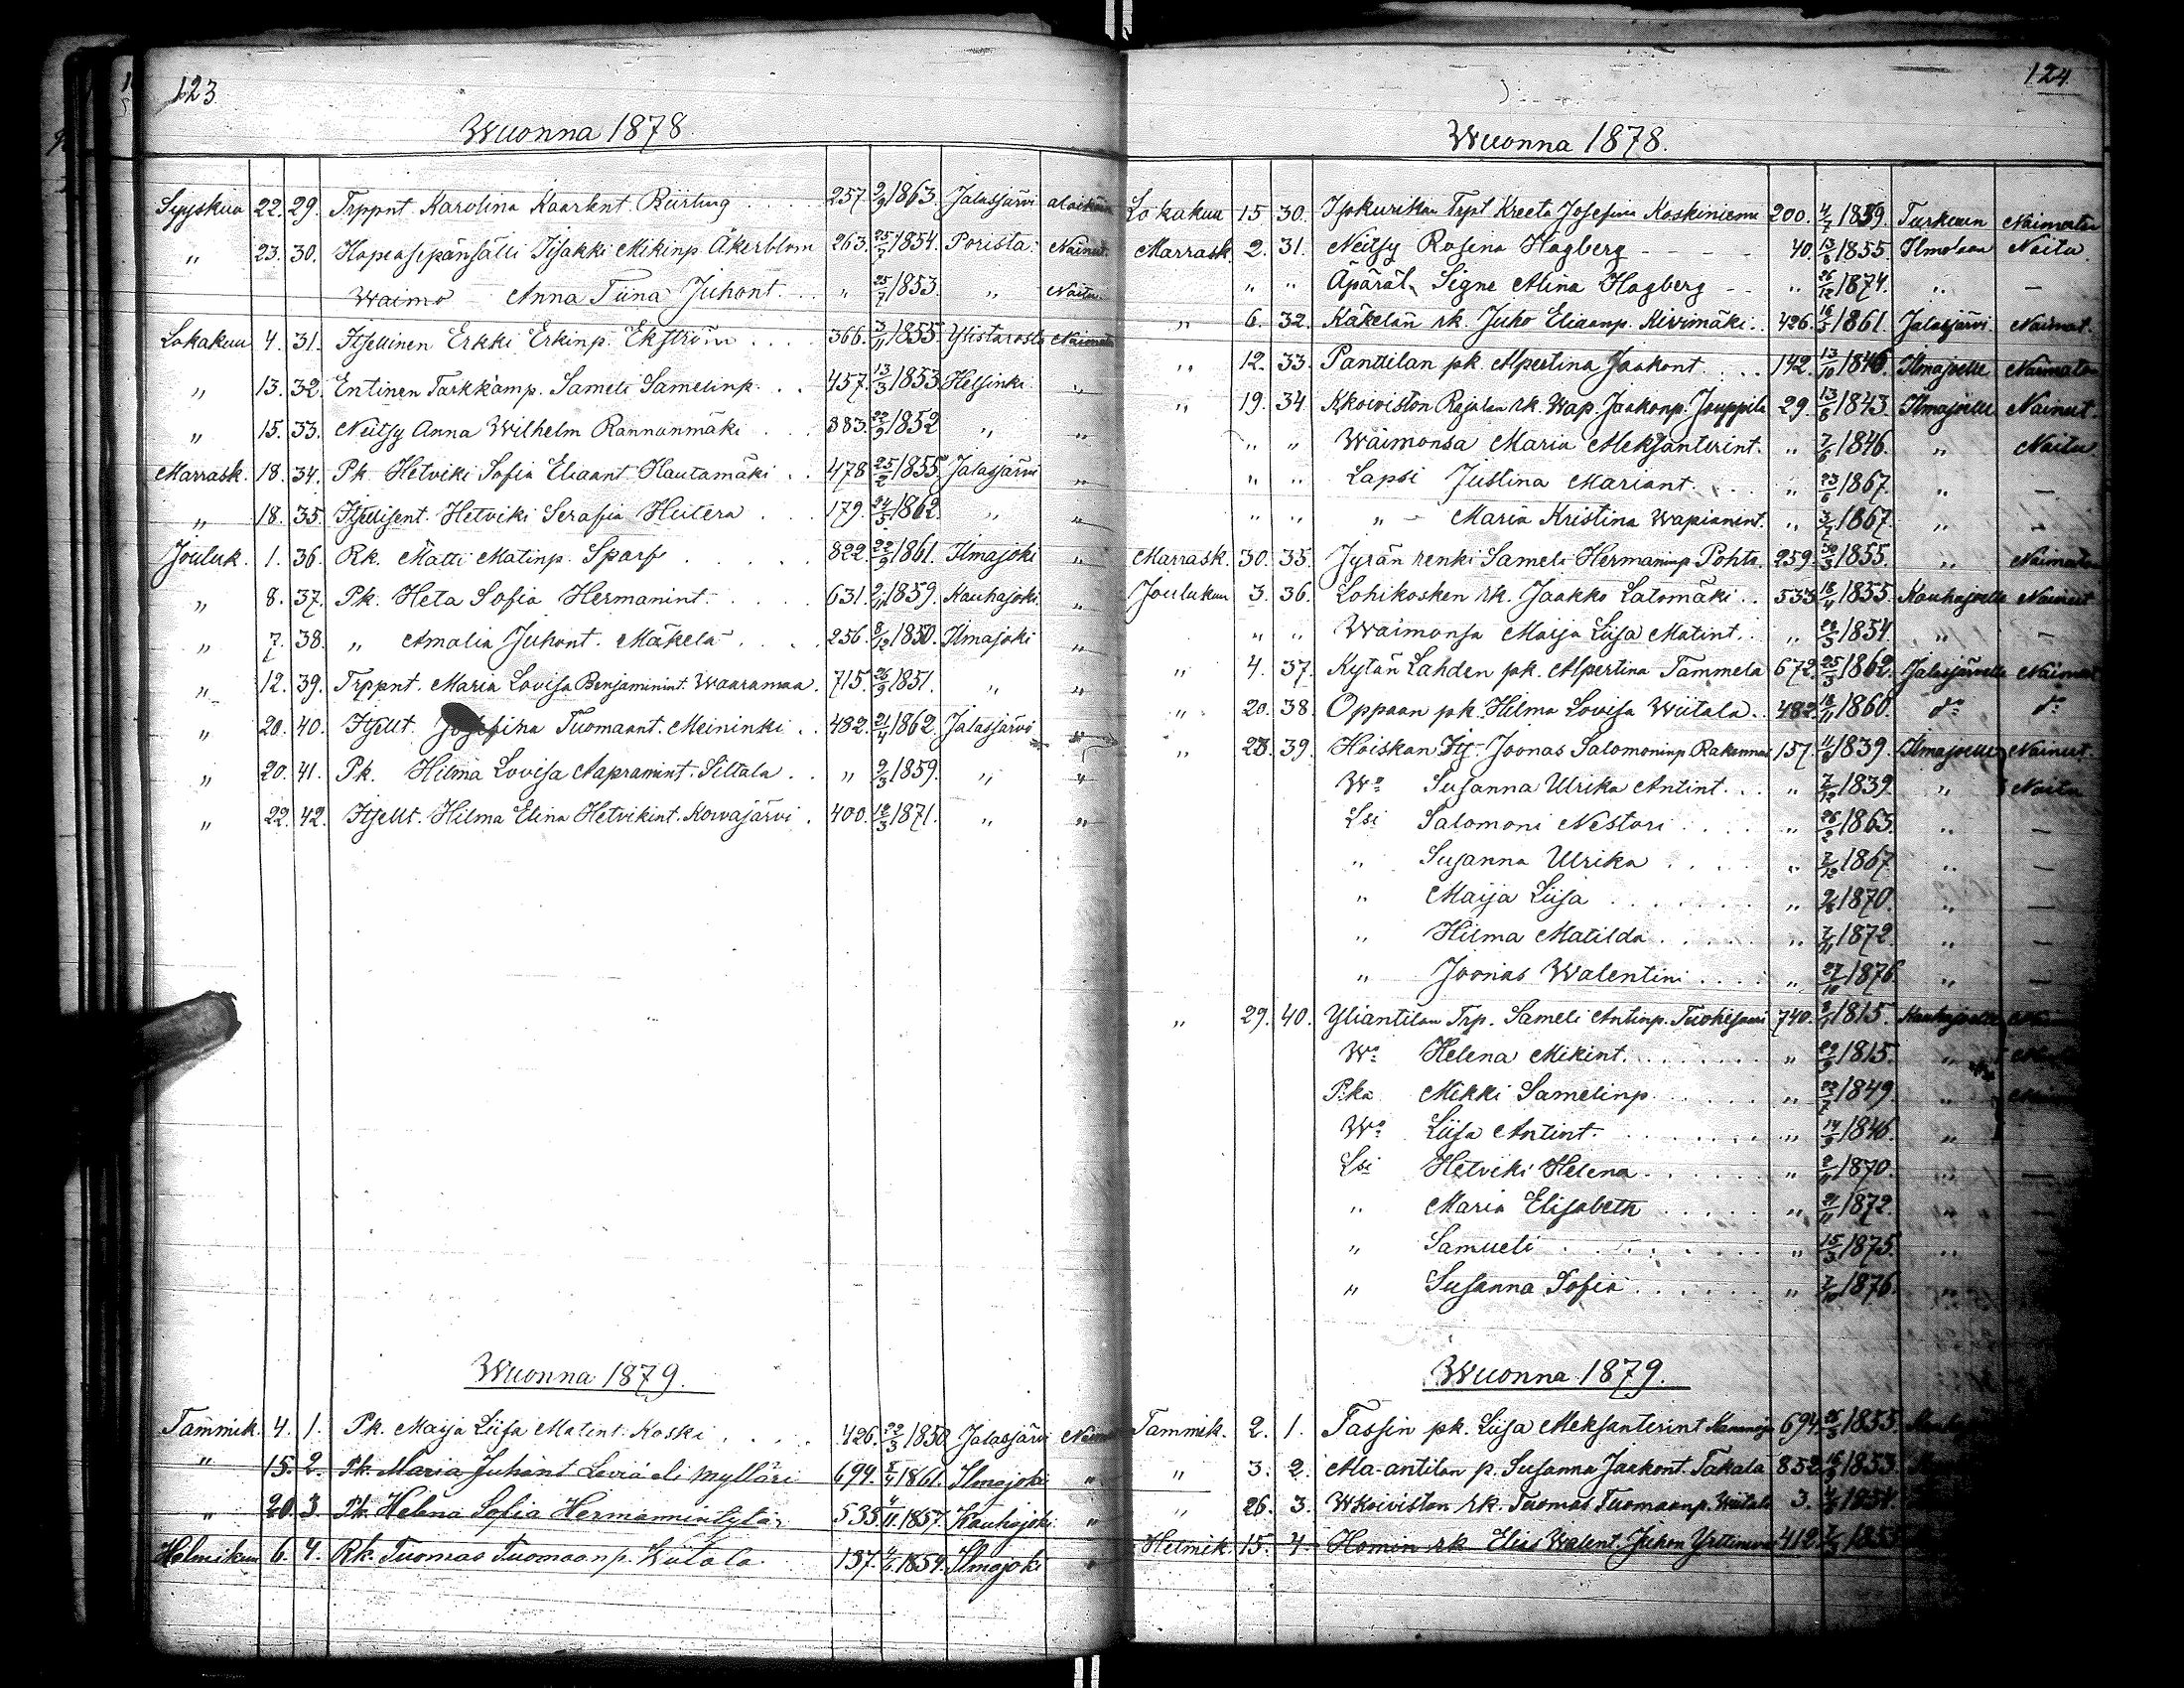 123
Wuonna 1878.
Syyskuu 22. 29. Trppnt. Karolina Kaarlent. Riirling . . . 257. 9/9 1863. Jalasjärvi alaikäin
" 23. 30. Hopeasepänsälli Iisakki Mikinp. Åkerblom 263. 25/7 1854. Porista. Nainut.
Waimo Anna Tiina Juhont. . . " 25/7 1853. " Naitu
Lokakuu 4. 31. Itsellinen Erkki Erkinp. Ekström . . . . 366. 3/11 1855. Ylistarosta Naimato
" 13. 32. Entinen Tarkk'amp. Sameli Samelinp. . . 457. 13/3 1853 Helsinki "
" 15. 33. Neitsy Anna Wilhelm Rannanmäki . . . 383. 22/9 1852 " "
Marrask. 18. 34. Pk. Hetviki Sofia Eliaant Hautamäki . . 478 25/2 1855 Jalasjärvi "
" 18. 35. Itsellisent. Hetviki Serafia Hietera . . . 179. 24/5 1862. " "
Jouluk. 1. 36. Rk. Matti Matinp. Sparf . . . . . 822. 22/9 1861. Ilmajoki "
" 8. 37. Pk. Heta Sofia Hermanint. . . . . 631. 2/11 1859. Kauhajoki. "
" 7. 38. " Amalia Juhont. Mäkelä . . . . 256. 8/12 1850. Ilmajoki "
" 12. 39. Trppnt. Maria Lovisa Benjaminint. Waaramaa. 715. 26/9 1851. " "
" 20. 40. Itsellt. Josefina Tuomaant. Meininki . . 482. 21/4 1862. Jalasjärvi "
" 20. 41. Pk. Hilma Lovisa Aapramint. Siltala . . " 9/3 1859. " "
" 22. 42. Itsellt. Hilma Elina Hetvikint. Kowajärvi . 400. 12/3 1871. " "
Wuonna 1879.
Tammik. 4. 1. Pk. Maija Liisa Matint. Koski . . . . 426. 22/3 1850 Jalasjärvi
" 15. 2. Pk. Maria Juhant Mylläri 694. 1861. Ilmajoki "
" 20. 3. Pk. Helena Sofia Hermannintytär 535 1857. Kauhajoki "
Helmikuu 6. 4. Rk. Tuomas Tuomaanp. Wiitala 137. 1854. Ilmajoki "
124
Wuonna 1878.
Lokakuu 15 30. Trpt Kreeta Josefina Koskiniemi 200. 4/7 1859. Turkuun Naimaton
Marrask. 2. 31. Neitsy Rosina Hagberg - - - - 40. 13/8 1855 Naitu
" " Äpäräl. Signe Alina Hagberg - - " 26/12 1874. " —
" 6. 32. Käkelän rk. Juho Eliaanp. Kivimäki . . 426. 16/5 1861. Jalasjärvi. Naimat.
" 12. 33. Panttilan pk. Alpertina Jaakont. . . . 142. 13/10 1846. Ilmajoelle Naimaton
" 19. 34. Kkoiviston Rajalan rk. Wap. Jaakonp. Jouppila 29. 13/6 1843. Ilmajoelle Nainut.
" " Waimonsa Maria Aleksanterint. " 7/6 1846. " Naitu
" " Lapsi Justina Mariant. . . . " 23/6 1867. " —
" " " Maria Kristina Wapianint. " 1867. " —
Marrask. 30. 35. Jyrän renki Sameli Hermaninp Pohto. 259. 30/3 1855. " Naimaton
Joulukuu 3. 36. Lohikosken rk. Jaakko Latomäki . . 533 18/11 1855. Kauhajoelle Nainut
" " Waimonsa Maija Liisa Matint. . . " 29/3 1854. " —
" 4. 37. Kytän Lahden pk. Alpertina Tammela 672. 25/3 1862. Jalasjärvelle Naimat
" 20. 38. Oppaan pk. Hilma Lovisa Wiitala . . 482. 18/11 1860. do do
" 23. 39. Hoiskan Itj. Joonas Salomoninp. Rakennus 157. 1839. Ilmajoelle Nainut.
Wo Susanna Ulrika Antint. . . " 7/12 1839. " Naitu
Lsi Salomoni Nestori . . . . " 26/2 1865. " —
" Susanna Ulrika . . . . . " 7/12 1867. " —
" Maija Liisa . . . . . . . " 1870. " —
" Hilma Matilda . . . . . " 7/11 1872. " —
" Joonas Walentini . . . . " 27/10 1876. " —
" 29. 40. Yliantilan Trp. Sameli Antinp. 740. 1815. Kauhajoelle
Wo Helena Mikint. . . . . . . . " 1815. "
P:ka Mikki Samelinp. . . . . . . " 22/7 1849. "
Wo Liisa Antint. . . . . . . . . " 1846. "
Lsi Hetviki Helena . . . . . . . " 1870. " —
" Maria Elisabeth . . . . . " 21/11 1872. " —
" Samueli . . . . . . . . . " 15/3 1875. " —
" Susanna Sofia . . . . . . " 7/10 1876. "
Wuonna 1879.
Tammik. 2. 1. Tassin pk. Liisa Aleksanterint 694. 1855.
" 3. 2. Ala-antilan p. Susanna Jaakont. Takala 852 1853.
" 26. 3. Wkoiviston rk. Tuomas Tuomaanp. Wiitala 3. 1854.
Helmik. 15. 4. Homin rk. Elias Walent. Juhon 412.